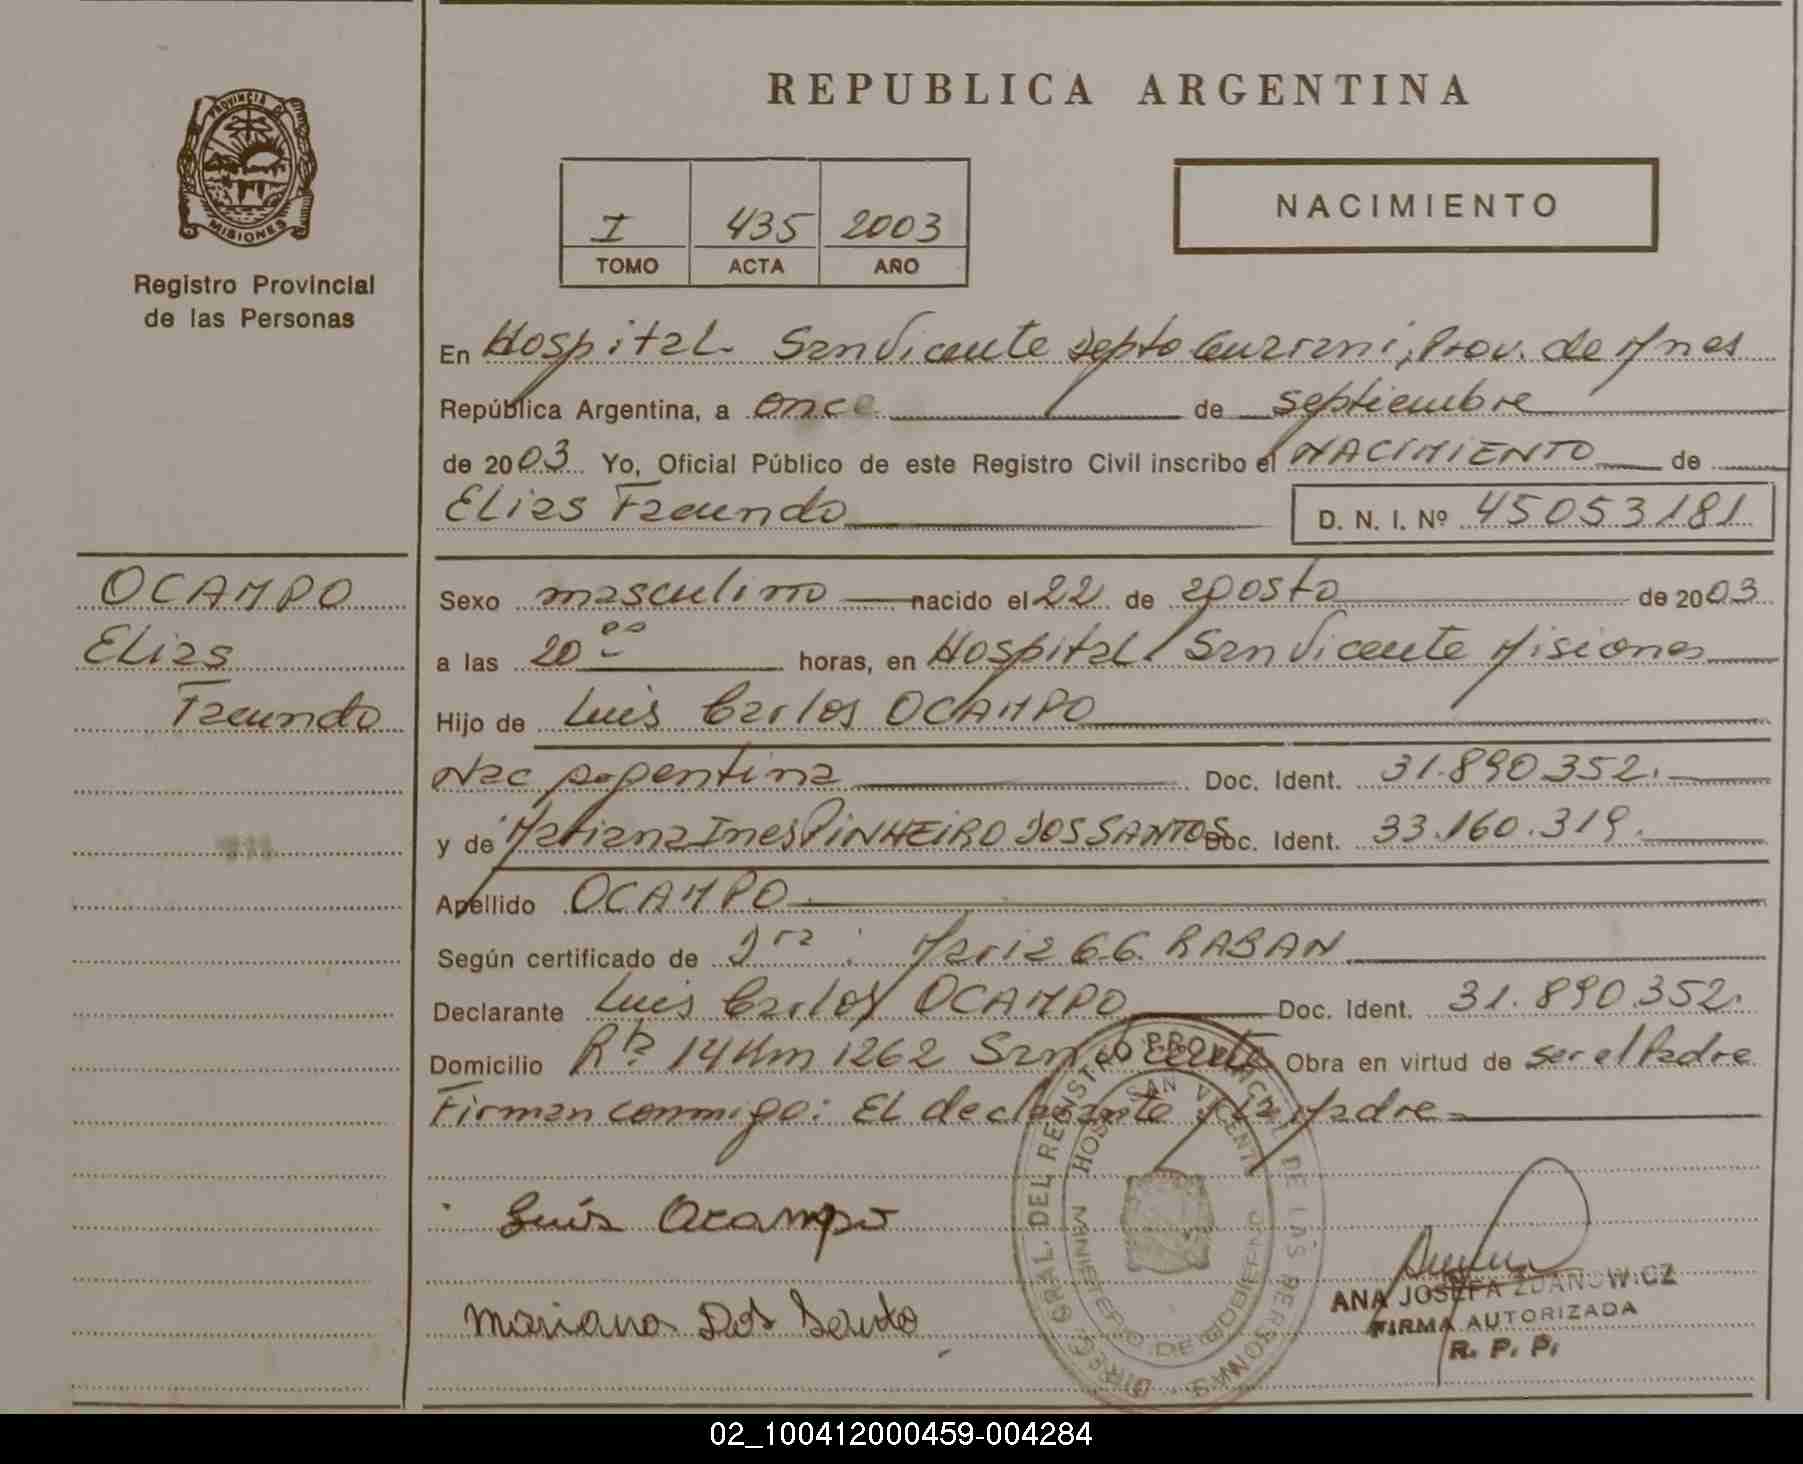 PROVINCIA DE
MISIONES
Registro Provincial
de las Personas
OCAMPO
Elias
Facundo
REPUBLICA ARGENTINA
I 435 2003
TOMO ACTA AÑO
NACIMIENTO
En Hospital San Vicente Depto Guarani, Prov. de Mnes
República Argentina, a once de septiembre
de 2003 Yo, Oficial Público de este Registro Civil inscribo el NACIMIENTO de
Elias Facundo D. N. I. Nº 45053181
Sexo masculino nacido el 22 de agosto de 2003
a las 20 00 horas, en Hospital San Vicente Misiones
Hijo de Luis Carlos OCAMPO
Nac Argentina Doc. Ident. 31.890.352.
y de Mariana Ines PINHEIRO DOS SANTOS Doc. Ident. 33.160.319.
Apellido OCAMPO
Según certificado de Dra: Maria G.G. RABAN
Declarante Luis Carlos OCAMPO Doc. Ident. 31.890.352.
Domicilio Rta 14 Km 1262 San Vicente Obra en virtud de ser el Padre
Firman conmigo: El declarante y la Madre
Luis Ocampo
Mariana Dos Santo
DIREC. GRAL. DEL REGISTRO PROVINCIAL DE LAS PERSONAS
HOSP. SAN VICENTE
MINISTERIO DE GOBIERNO
ANA JOSEFA ZDANOWICZ
FIRMA AUTORIZADA
R. P. P.
02_100412000459-004284